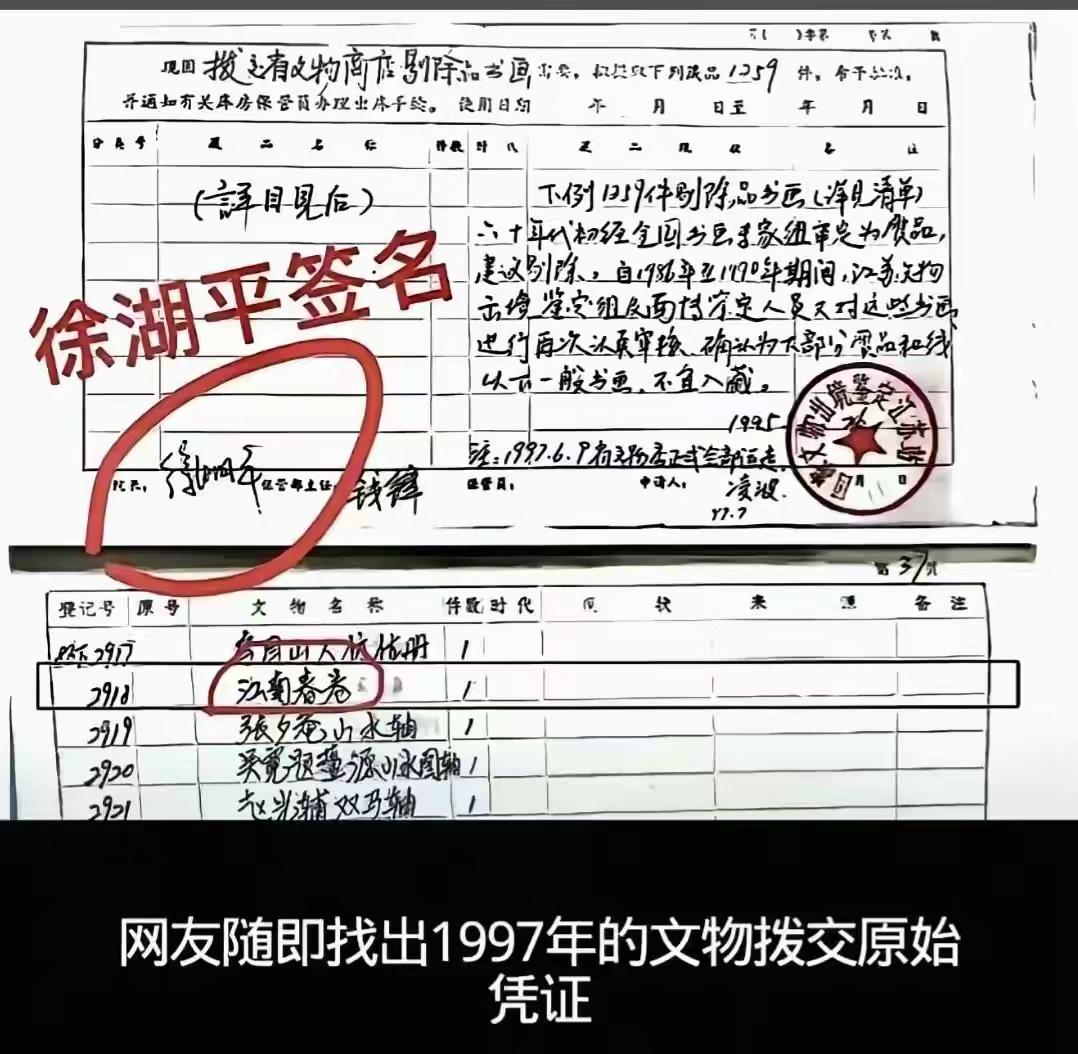 现因 拨交省文物商店剔除品书画 需要,拟提取下列藏品 1259 件,希予批准,
并通知有关库房保管员办理出库手续。使用日期 年 月 日至 年 月 日
分类号 藏品名称 件数 时代 藏品现状 备注
(詳目見后)
下例1259件剔除品书画(详见清单)
六十年代初经全国书画专家组审定为赝品,
建议剔除。自1986年至1990年期间,江苏文物
出境鉴定组及南博鉴定人员又对这些书画
进行再次认真审核,确认为大部分赝品和线
以下一般书画,不宜入藏。
1995
注:1997.6.9省文物店正式全部运走
徐湖平签名
院长: 徐湖平 保管部主任: 钱锋 保管员: 申请人: 凌波
97.7
第37页
登记号 原号 文物名称 件数 时代 现状 来源 备注
2917 1
2918 江南春卷 1
2919 张夕庵山水轴 1
2920 吴宽题董源山水图轴 1
2921 赵光浦双马轴 1
网友随即找出1997年的文物拨交原始
凭证